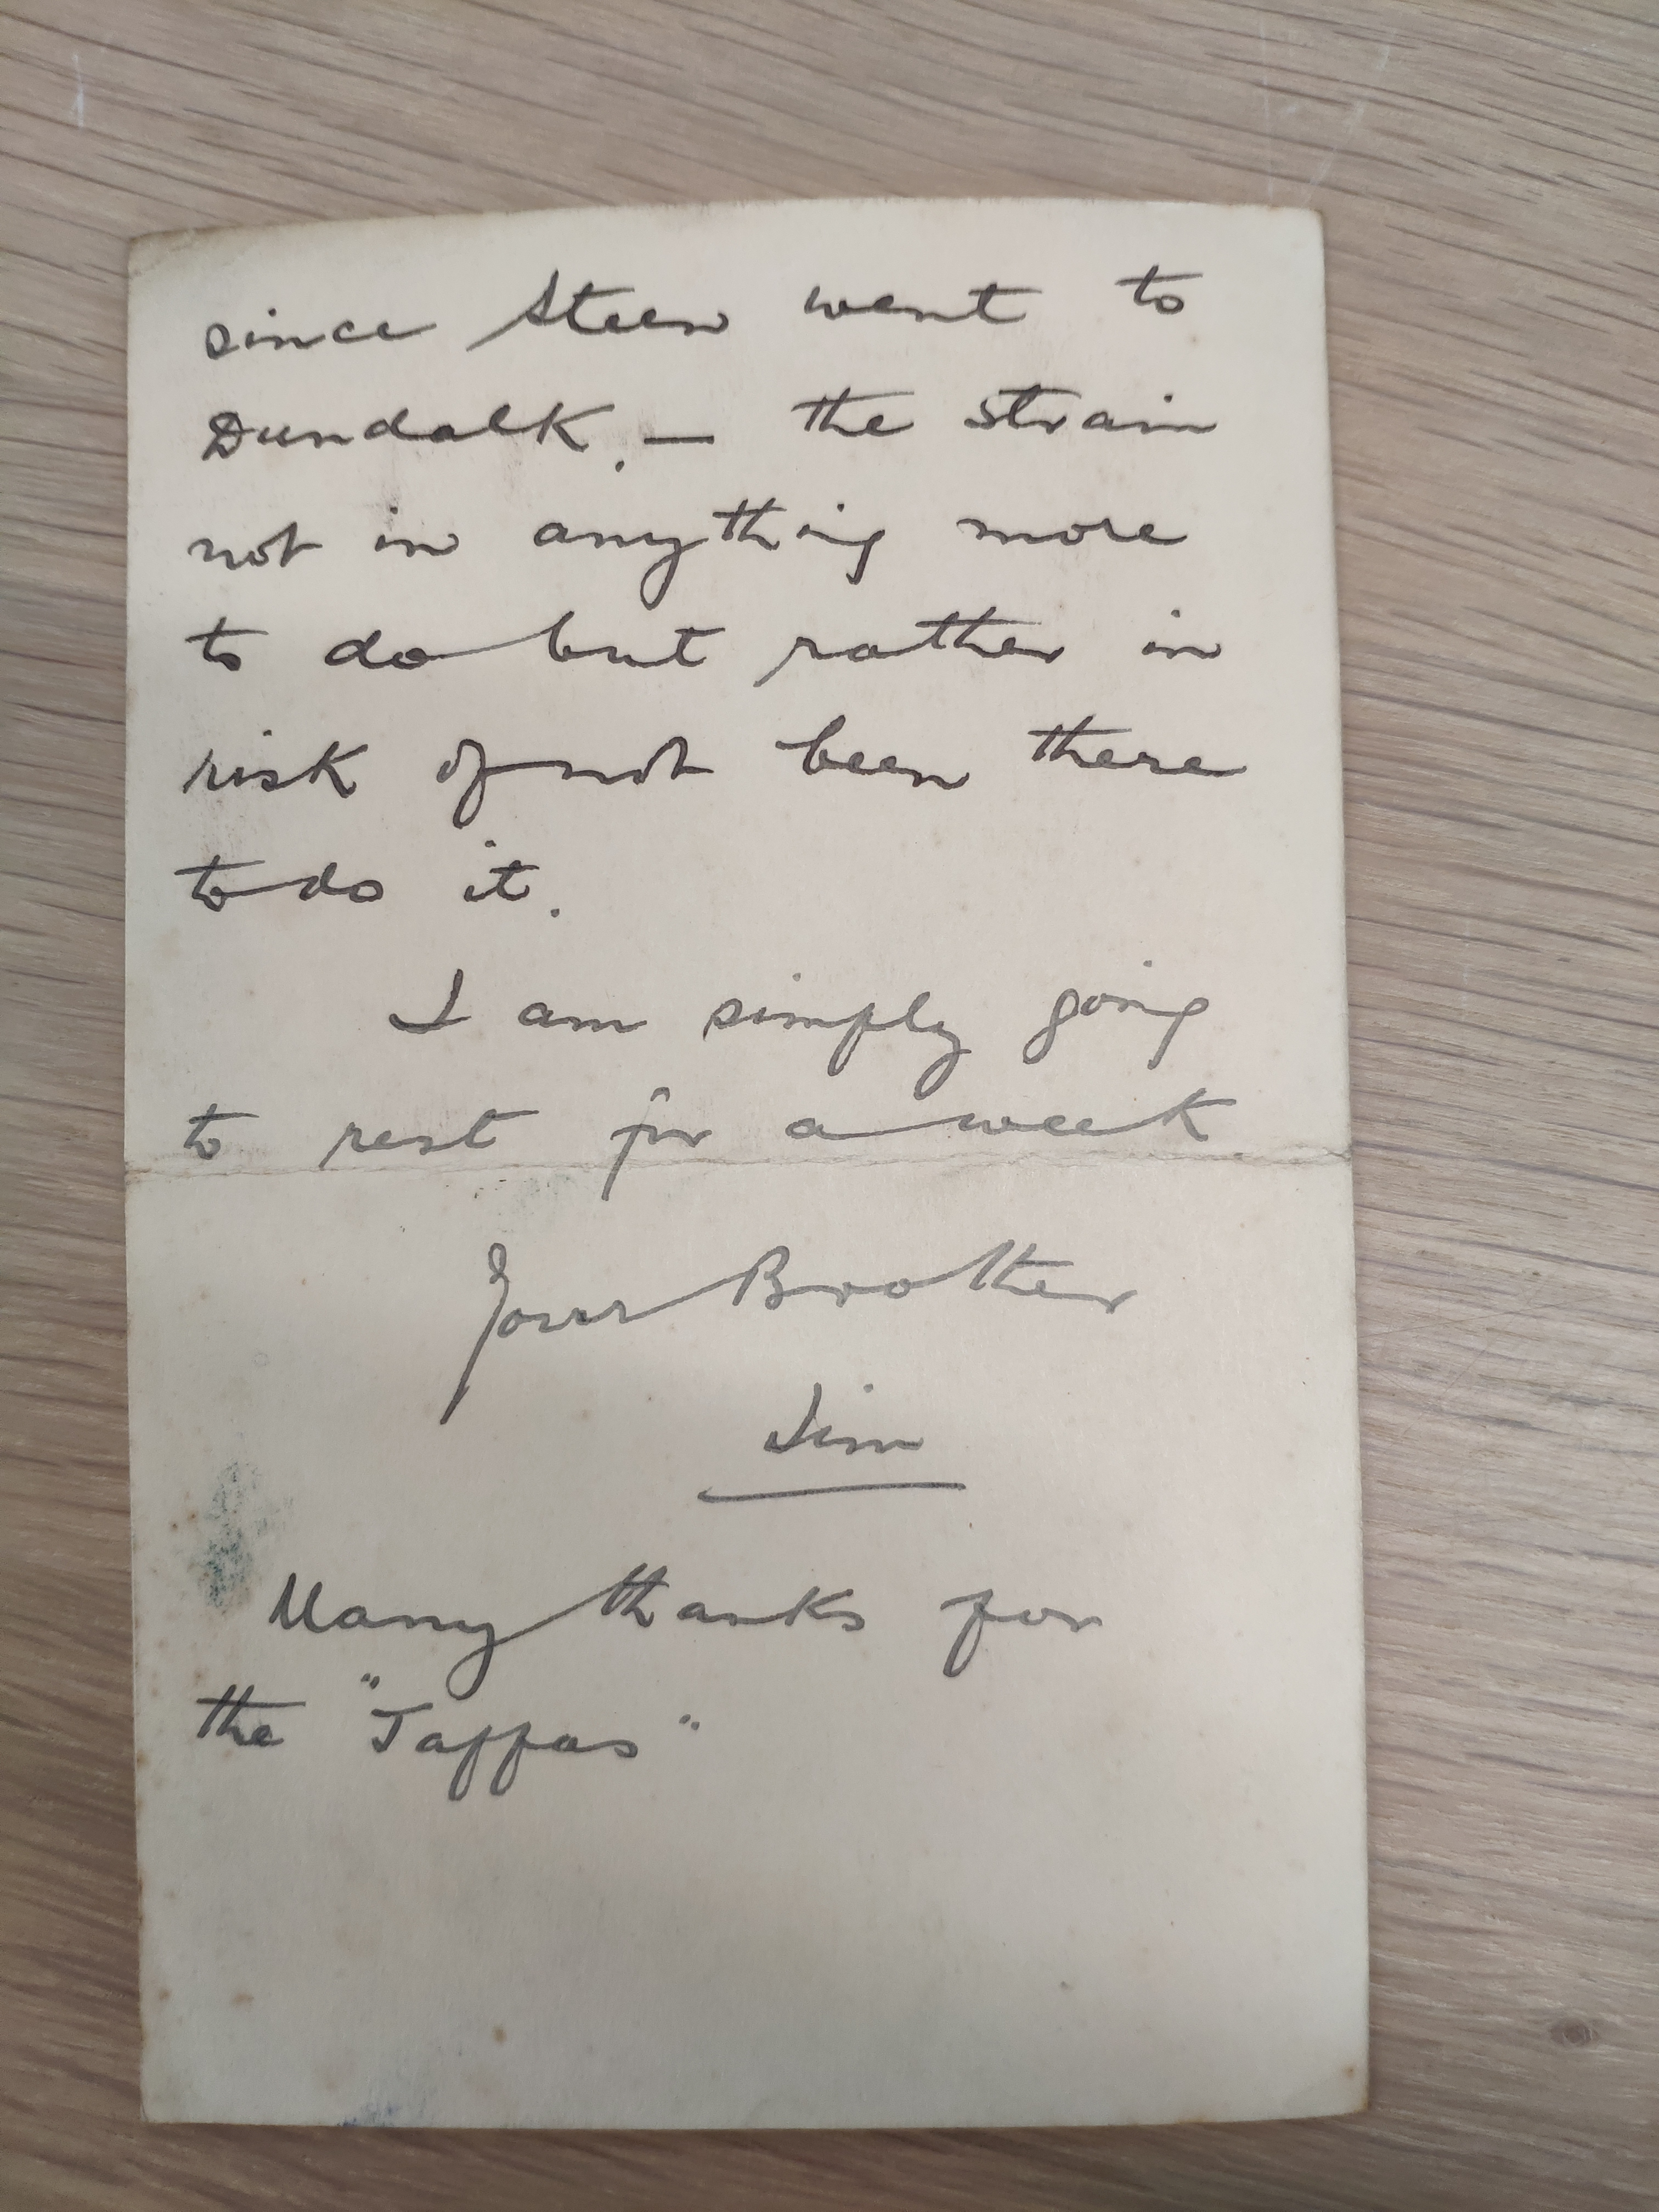 since Steen went to
Dundalk. — the strain
not in anything more
to do but rather in
risk of not been there
to do it.
I am simply going
to rest for a week.
Your Brother
Jim
Many thanks for
the "Jaffas"